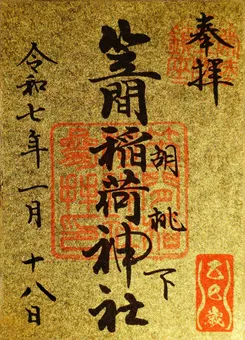 奉拝
胡桃下
笠間稲荷神社
令和七年一月十八日
乙巳歳